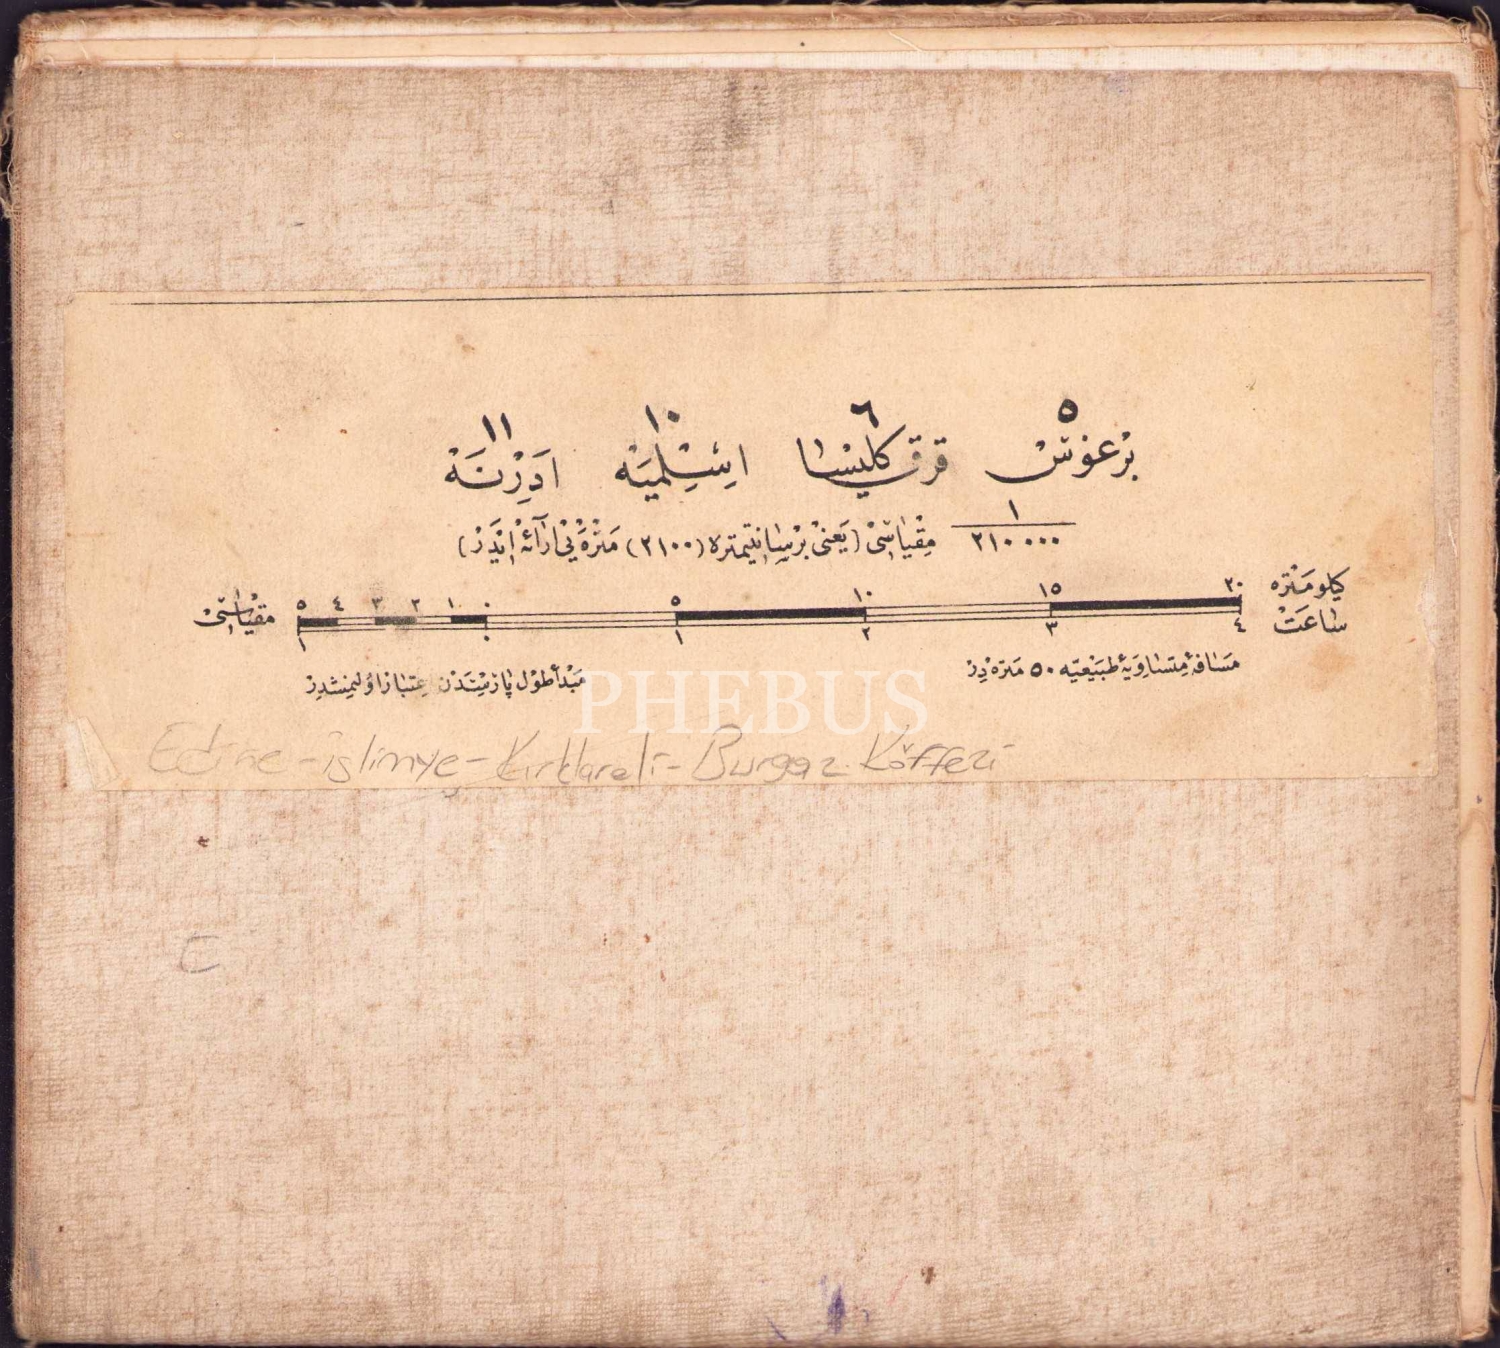 ٥ ٦ ١٠ ١١
برغوس قرق كليسا اسليميه ادرنه
١
٢١٠٠٠٠ مقياسى (يعنى بر سانتيمتره (٢١٠٠) متره يى ارائه ايدر)
كيلومتره ٢٠ ١٥ ١٠ ٥ ٠ ١ ٢ ٣ ٤ ٥ مقياسى
ساعت ٤ ٣ ٢ ١ ٠ ١
مسافهٔ متساويهٔ طبيعيه ٥٠ متره در
مبدأ طول پارىسدن اعتبار اولنمشدر
PHEBUS
Edirne - islimye - Kırklareli - Burgaz Körfezi